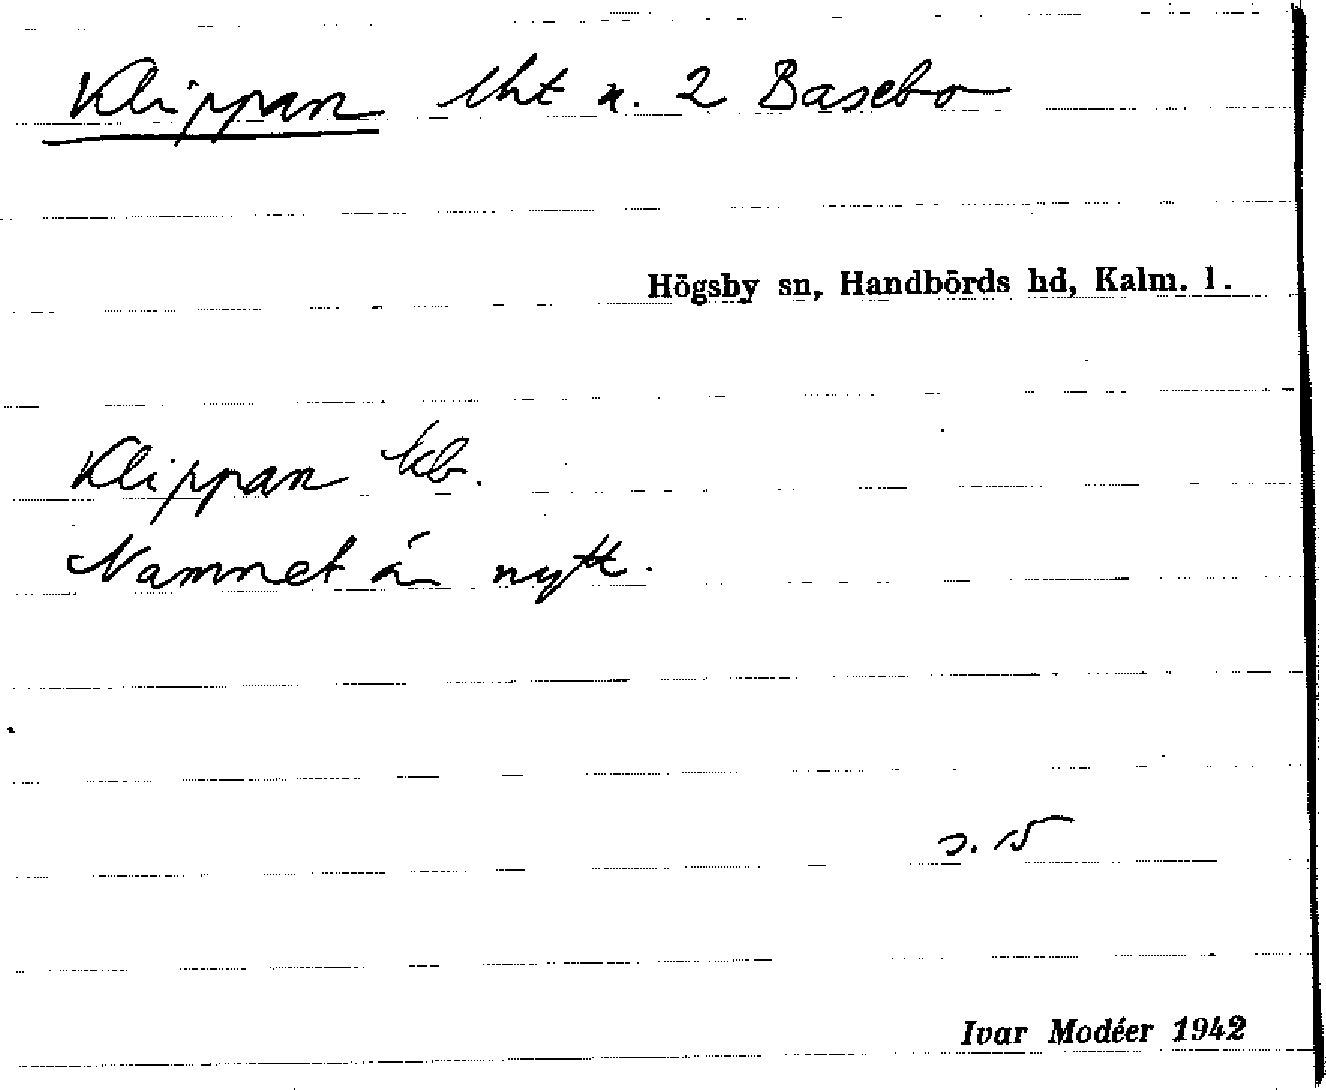 Klippan lht n. 2 Basebo
Högsby sn, Handbörds hd, Kalm. l.
Klippan kb.
Namnet är nytt.
s. 15
Ivar Modéer 1942